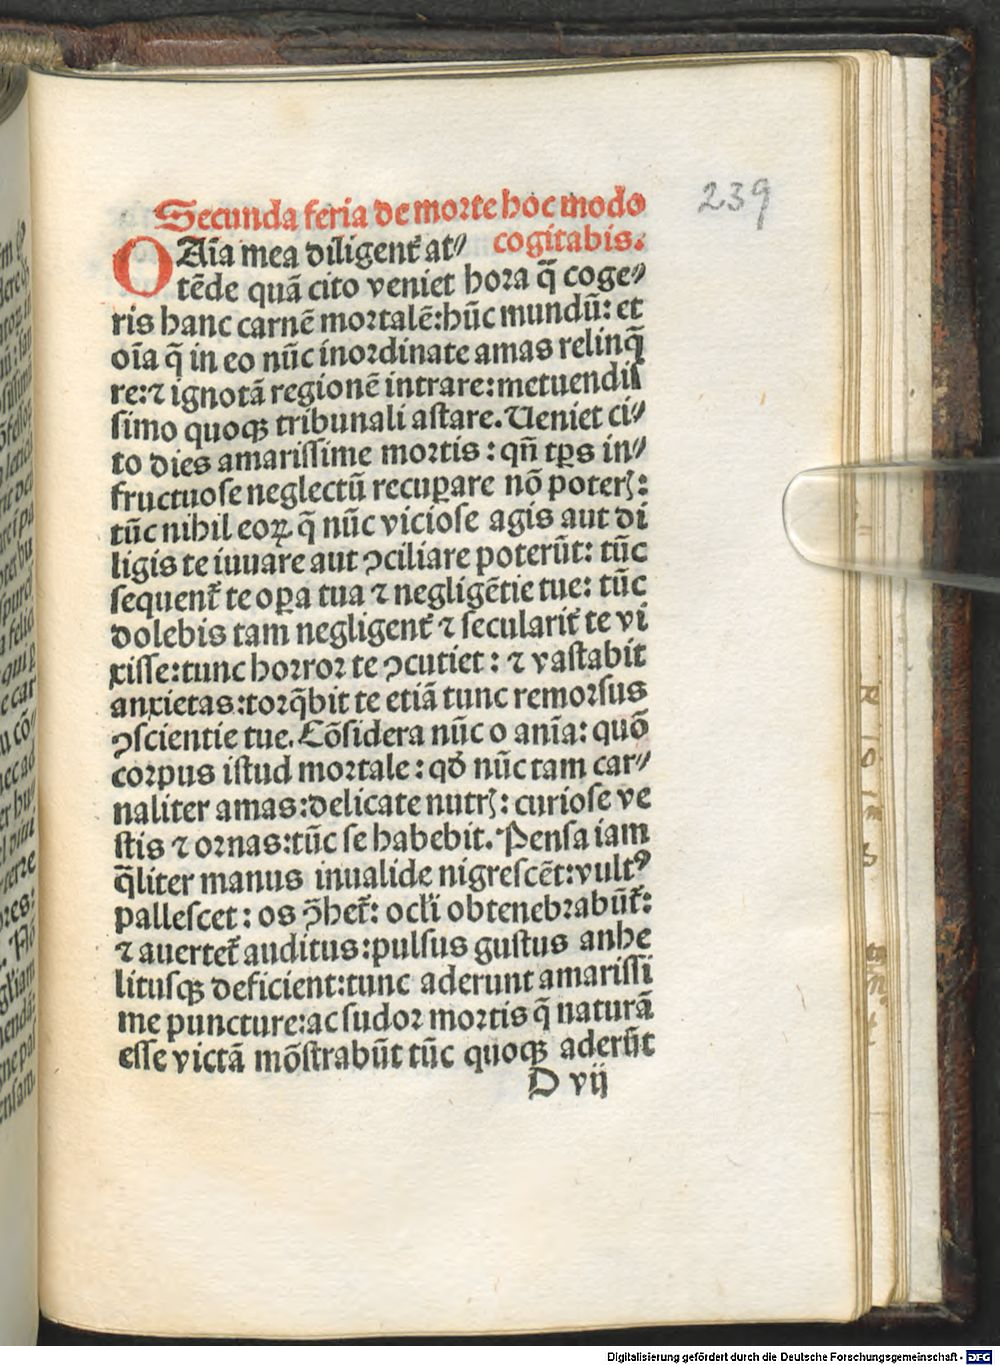 Secunda feria de morte hoc modo
cogitabis.
O Aīa mea diligenť at⸗
tēde quā cito veniet hora q̄ coge⸗
ris hanc carnē mortalē: hūc mundū: et
oīa q̄ in eo nūc inordinate amas relinq̄
re: ⁊ ignotā regionē intrare: metuendiſ
ſimo quoqꝫ tribunali aſtare. Ueniet ci⸗
to dies amariſſime mortis: qn̄ tꝑs in⸗
fructuoſe neglectū recuꝑare nō poterꝭ:
tūc nihil eoꝝ q̄ nūc vicioſe agis aut di
ligis te iuuare aut ꝯciliare poterūt: tūc
ſequenť te oꝑa tua ⁊ negligētie tue: tūc
dolebis tam negligenť ⁊ ſecularit̛ te vi
xiſſe: tunc horror te ꝯcutiet: ⁊ vaſtabit
anxietas: torq̄bit te etiā tunc remorſus
ꝯſcientie tue. Cōſidera nūc o anīa: quō
corpus iſtud mortale: qð nūc tam car⸗
naliter amas: delicate nutrꝭ: curioſe ve
ſtis ⁊ ornas: tūc ſe habebit. Penſa iam
q̄liter manus inualide nigreſcēt: vultꝰ
palleſcet: os ꝯ̄heť: ocl̄i obtenebrabūť:
⁊ auerteť auditus: pulſus guſtus anhe
lituſqꝫ deficient: tunc aderunt amariſſi
me puncture: ac ſudor mortis q̄ naturā
eſſe victā mōſtrabūt tūc quoqꝫ aderūt
D vij
239
Digitalisierung gefördert durch die Deutsche Forschungsgemeinschaft - DFG